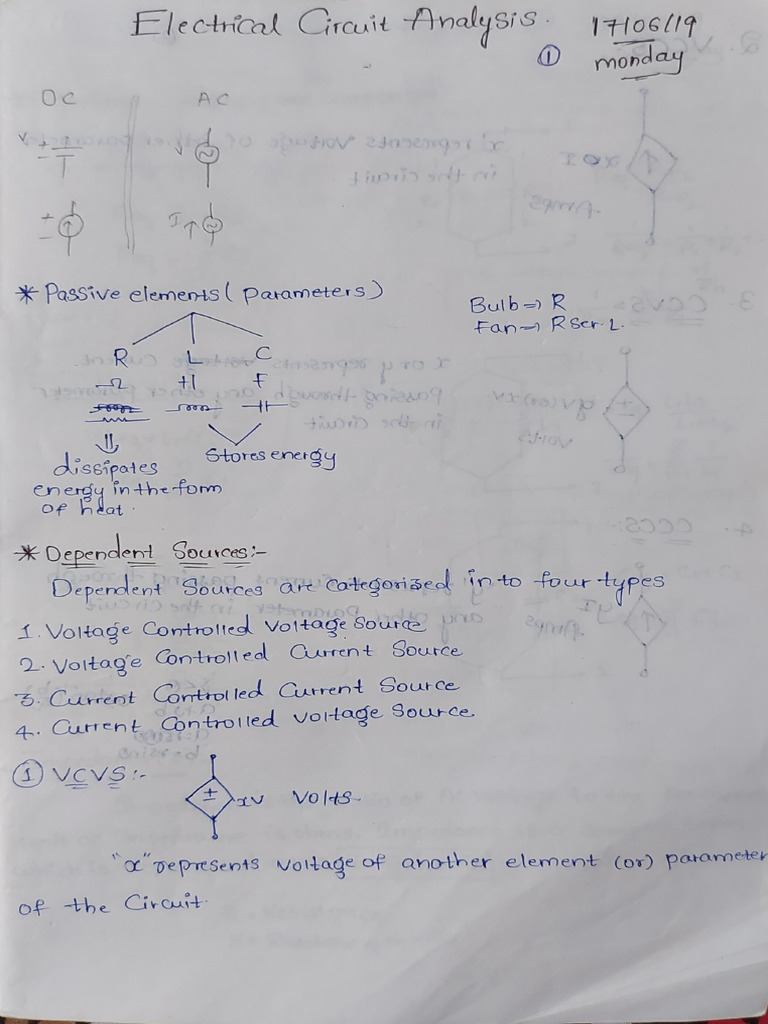 Electrical Circuit Analysis.
17/06/19
① monday
DC AC
V + -
V
+ -
I
* Passive elements (parameters)
Bulb => R
Fan => R Ser. L.
R L C
Ω H F
dissipates
Stores energy
energy in the form
of heat.
* Dependent Sources:-
Dependent Sources are categorized in to four types
1. Voltage Controlled Voltage Source
2. Voltage Controlled Current Source
3. Current Controlled Current Source
4. Current Controlled Voltage Source
① VCVS:-
± xv Volts
"x" represents Voltage of another element (or) parameter
of the Circuit.